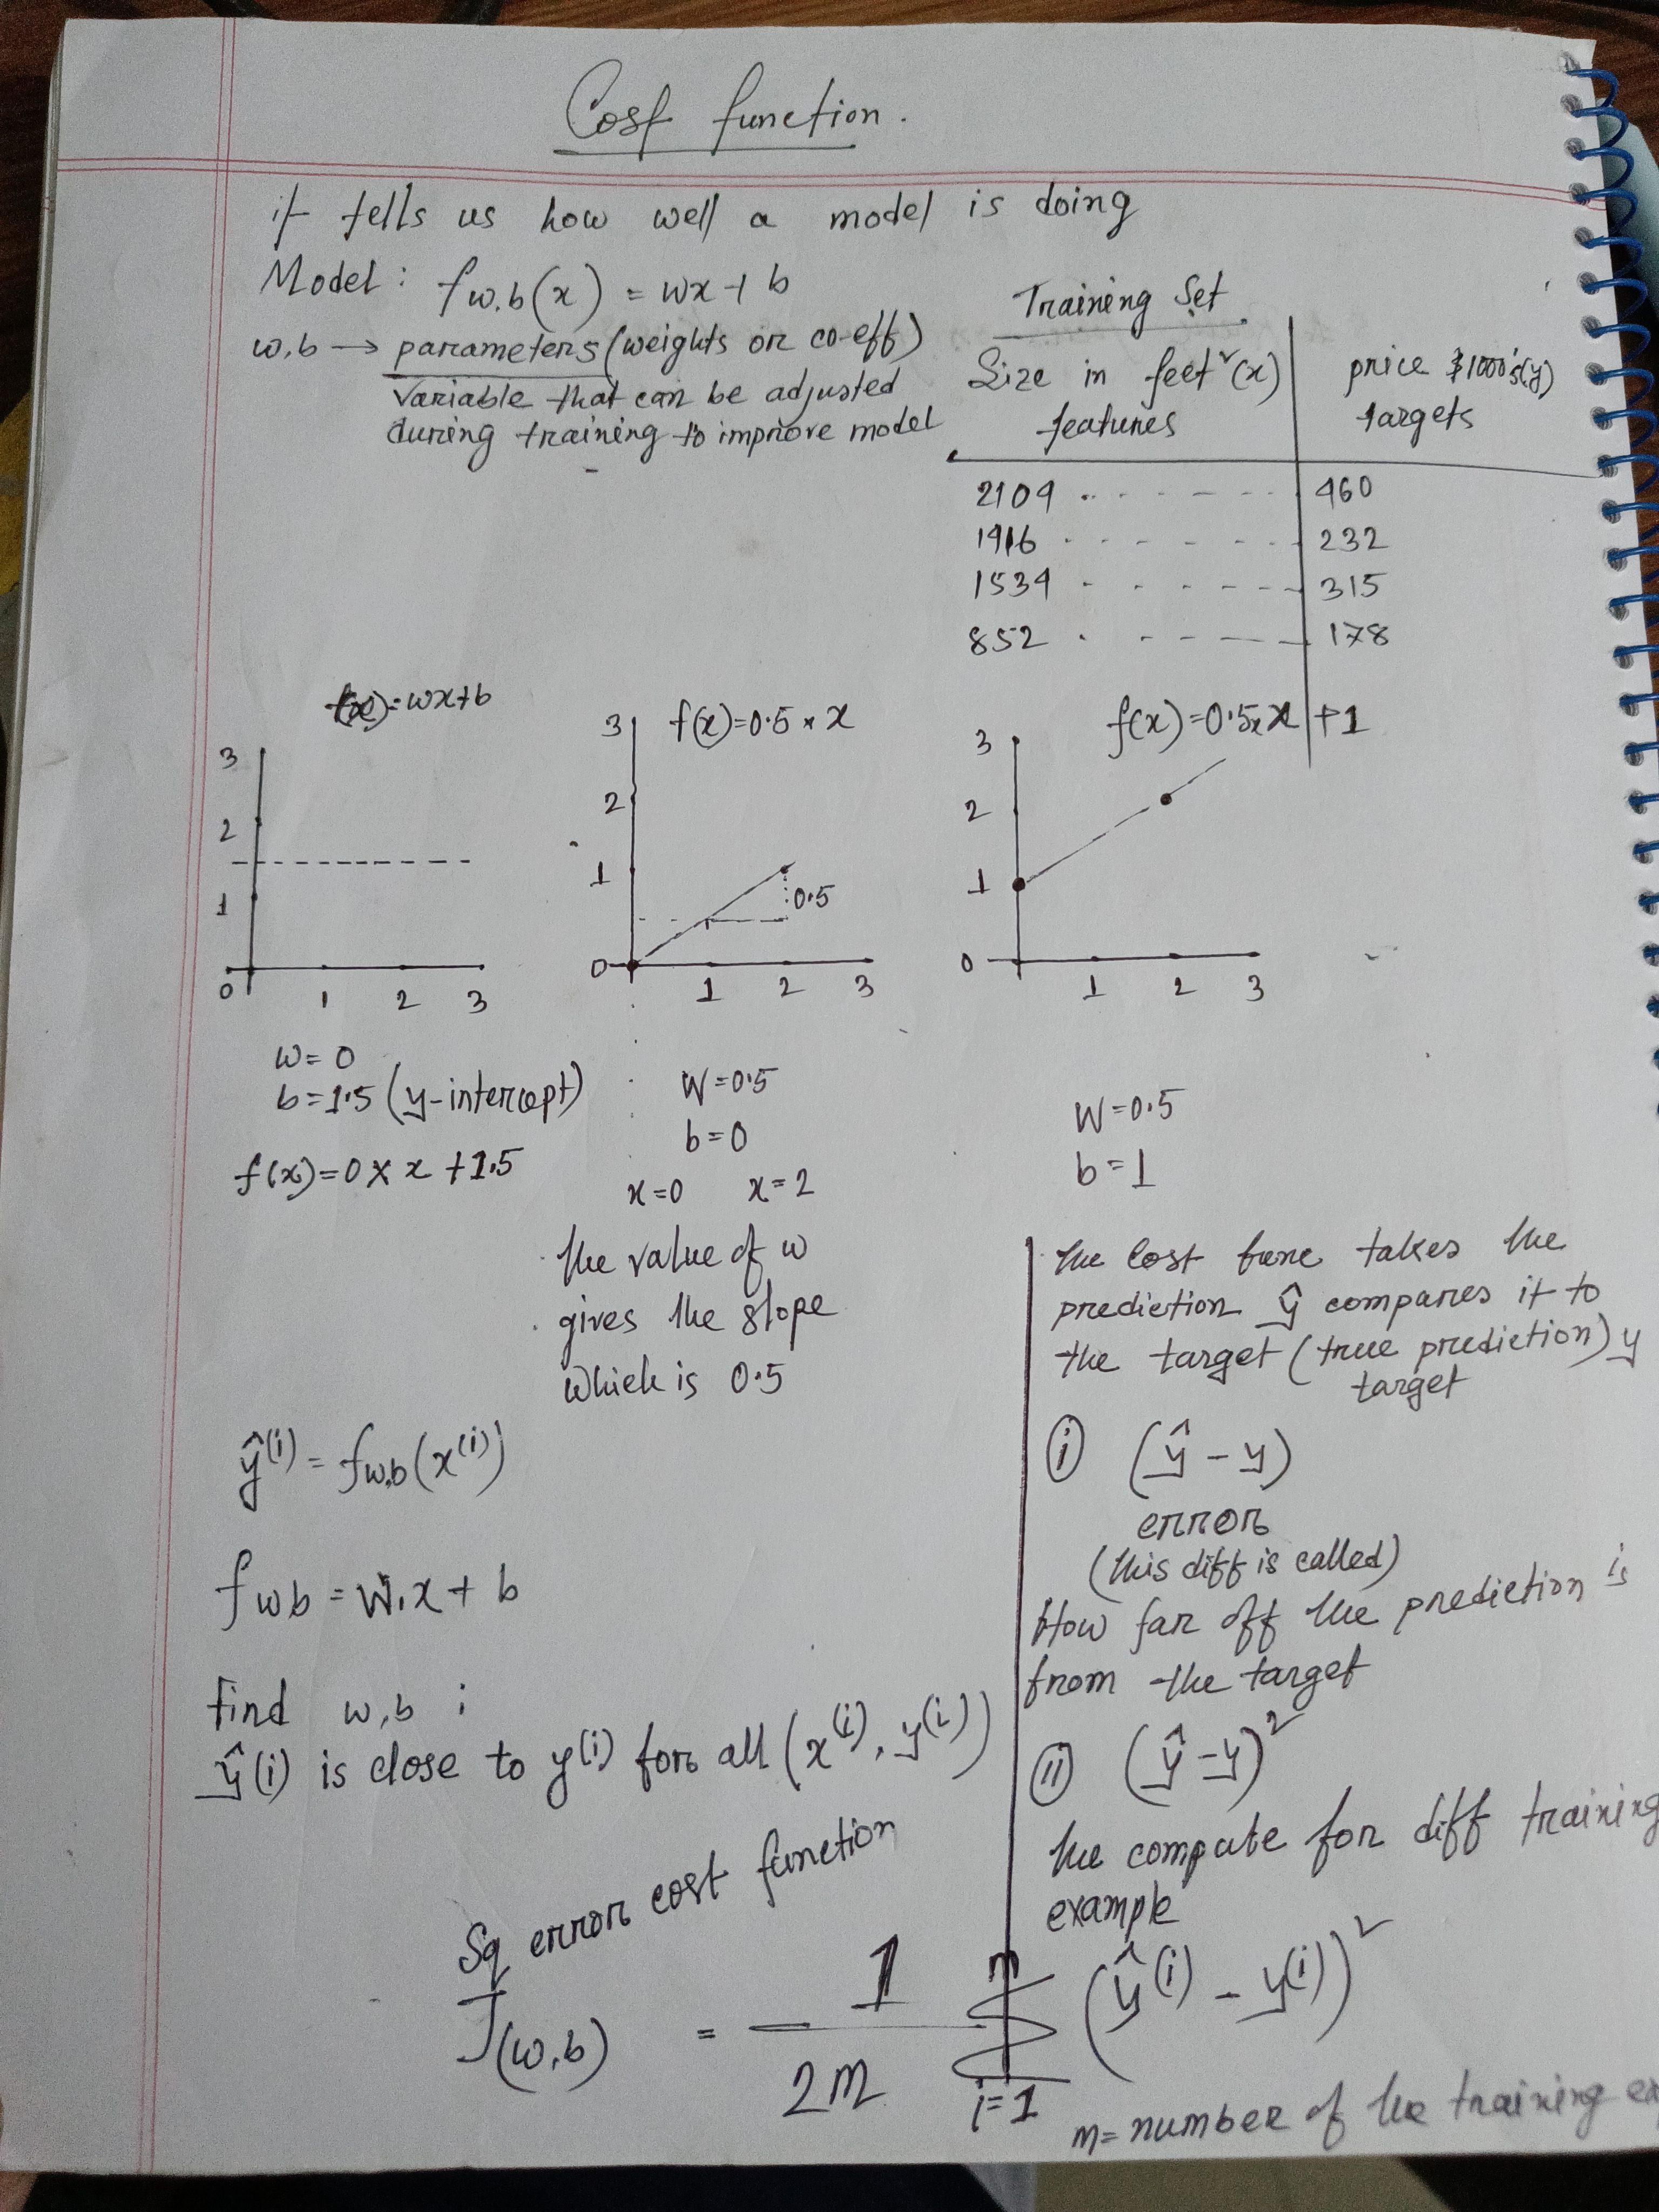 Cost function.
it tells us how well a model is doing
Model: fw,b(x) = wx + b
w,b → parameters (weights or co-eff)
variable that can be adjusted
during training to improve model
Training Set
Size in feet² (x) | price $1000's(y)
features | targets
2104 | 460
1416 | 232
1534 | 315
852 | 178
f(x)=wx+b
3
2
1
0 1 2 3
w=0
b=1.5 (y-intercept)
f(x)=0×x+1.5
f(x)=0.5×x
3
2
1
0.5
0 1 2 3
W=0.5
b=0
x=0 x=2
the value of w
gives the slope
which is 0.5
f(x)=0.5×x+1
3
2
1
0 1 2 3
W=0.5
b=1
ŷ(i) = fw,b(x(i))
fwb = W.x + b
find w,b :
ŷ(i) is close to y(i) for all (x(i), y(i))
the Cost func takes the
prediction ŷ compares it to
the target (true prediction) y
target
(i) (ŷ - y)
error
(this diff is called)
How far off the prediction is
from the target
(ii) (ŷ - y)²
the compute for diff training
example
Sq error cost function
J(w,b) = 1/2m m∑i=1 (ŷ(i) - y(i))²
m= number of the training ex